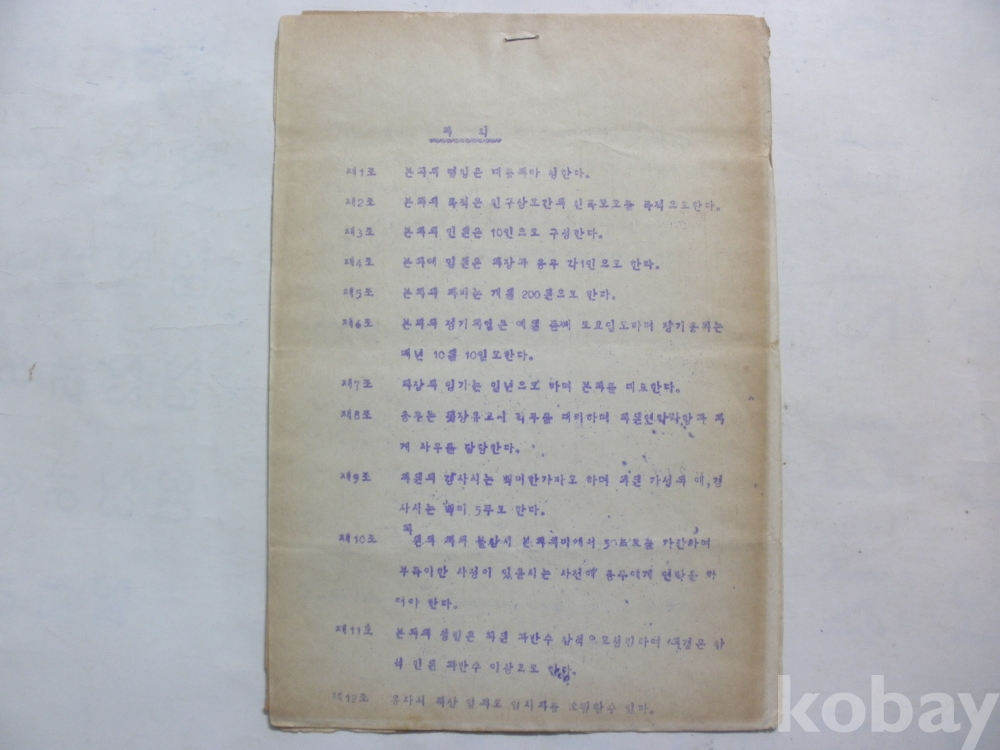 회 칙
제1조 본회의 명칭은 라 칭한다.
제2조 본회의 목적은 친구상호간의 친목도모를 목적으로한다.
제3조 본회의 인원은 10인으로 구성한다.
제4조 본회에 임원은 회장과 총무 각1인으로 한다.
제5조 본회의 회비는 개월 200원으로 한다.
제6조 본회의 정기회일은 매월 둘째 토요일로하며 정기총회는
매년 10월 10일로한다.
제7조 회장의 임기는 일년으로 하며 본회를 대표한다.
제8조 총무는 회장유고시 직무를 대리하며 회원연락사항과 회
계 사무를 담당한다.
제9조 회원의 경사시는 백미한가마로 하며 회원 가정의 애,경
사시는 백미 5두로 한다.
제10조 회원의 회의 불참시 본회회비에서 를 가산하며
부득이한 사정이 있을시는 사전에 총무에게 연락을 하
여야 한다.
제11조 본회의 성립은 회원 과반수 참석으로성립하며 은 참
석 인원 과반수 이상으로 한다.
제12조 회상 임시회를 소집할수 있다.
kobay